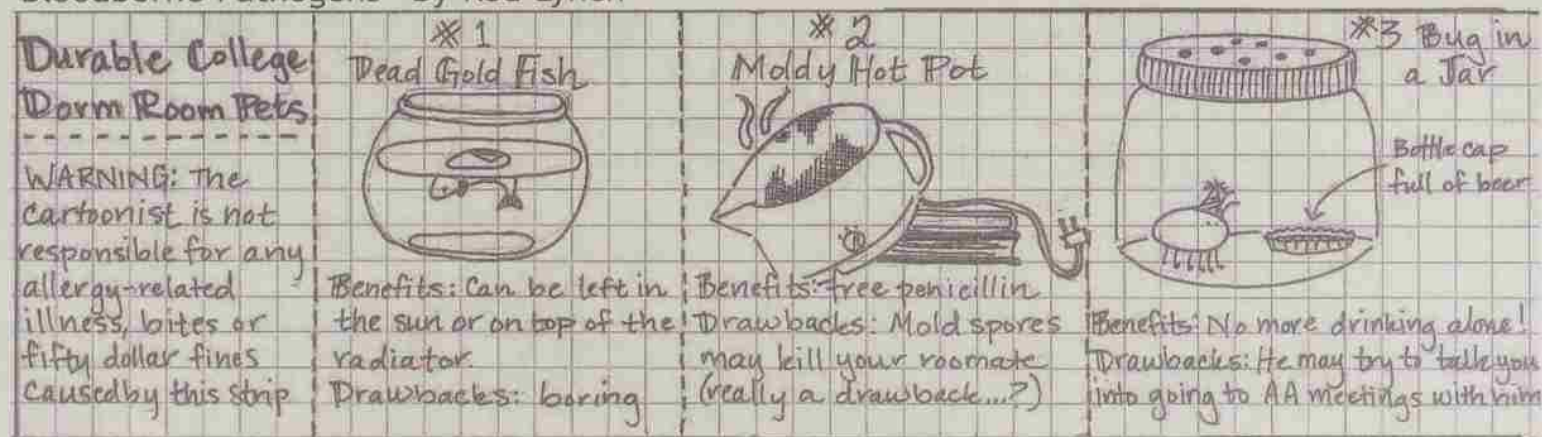 Bloodborne Pathogens By Lynch
Durable College
Dorm Room Pets
WARNING: The
cartoonist is not
responsible for any
allergy-related
illness, bites or
fifty dollar fines
caused by this strip
#1
Dead Gold Fish
Benefits: Can be left in
the sun or on top of the
radiator.
Drawbacks: boring
#2
Moldy Hot Pot
Benefits: free penicillin
Drawbacks: Mold spores
may kill your roomate
(really a drawback...?)
#3 Bug in
a Jar
Bottle cap
full of beer
Benefits: No more drinking alone!
Drawbacks: He may try to talk you
into going to AA meetings with him